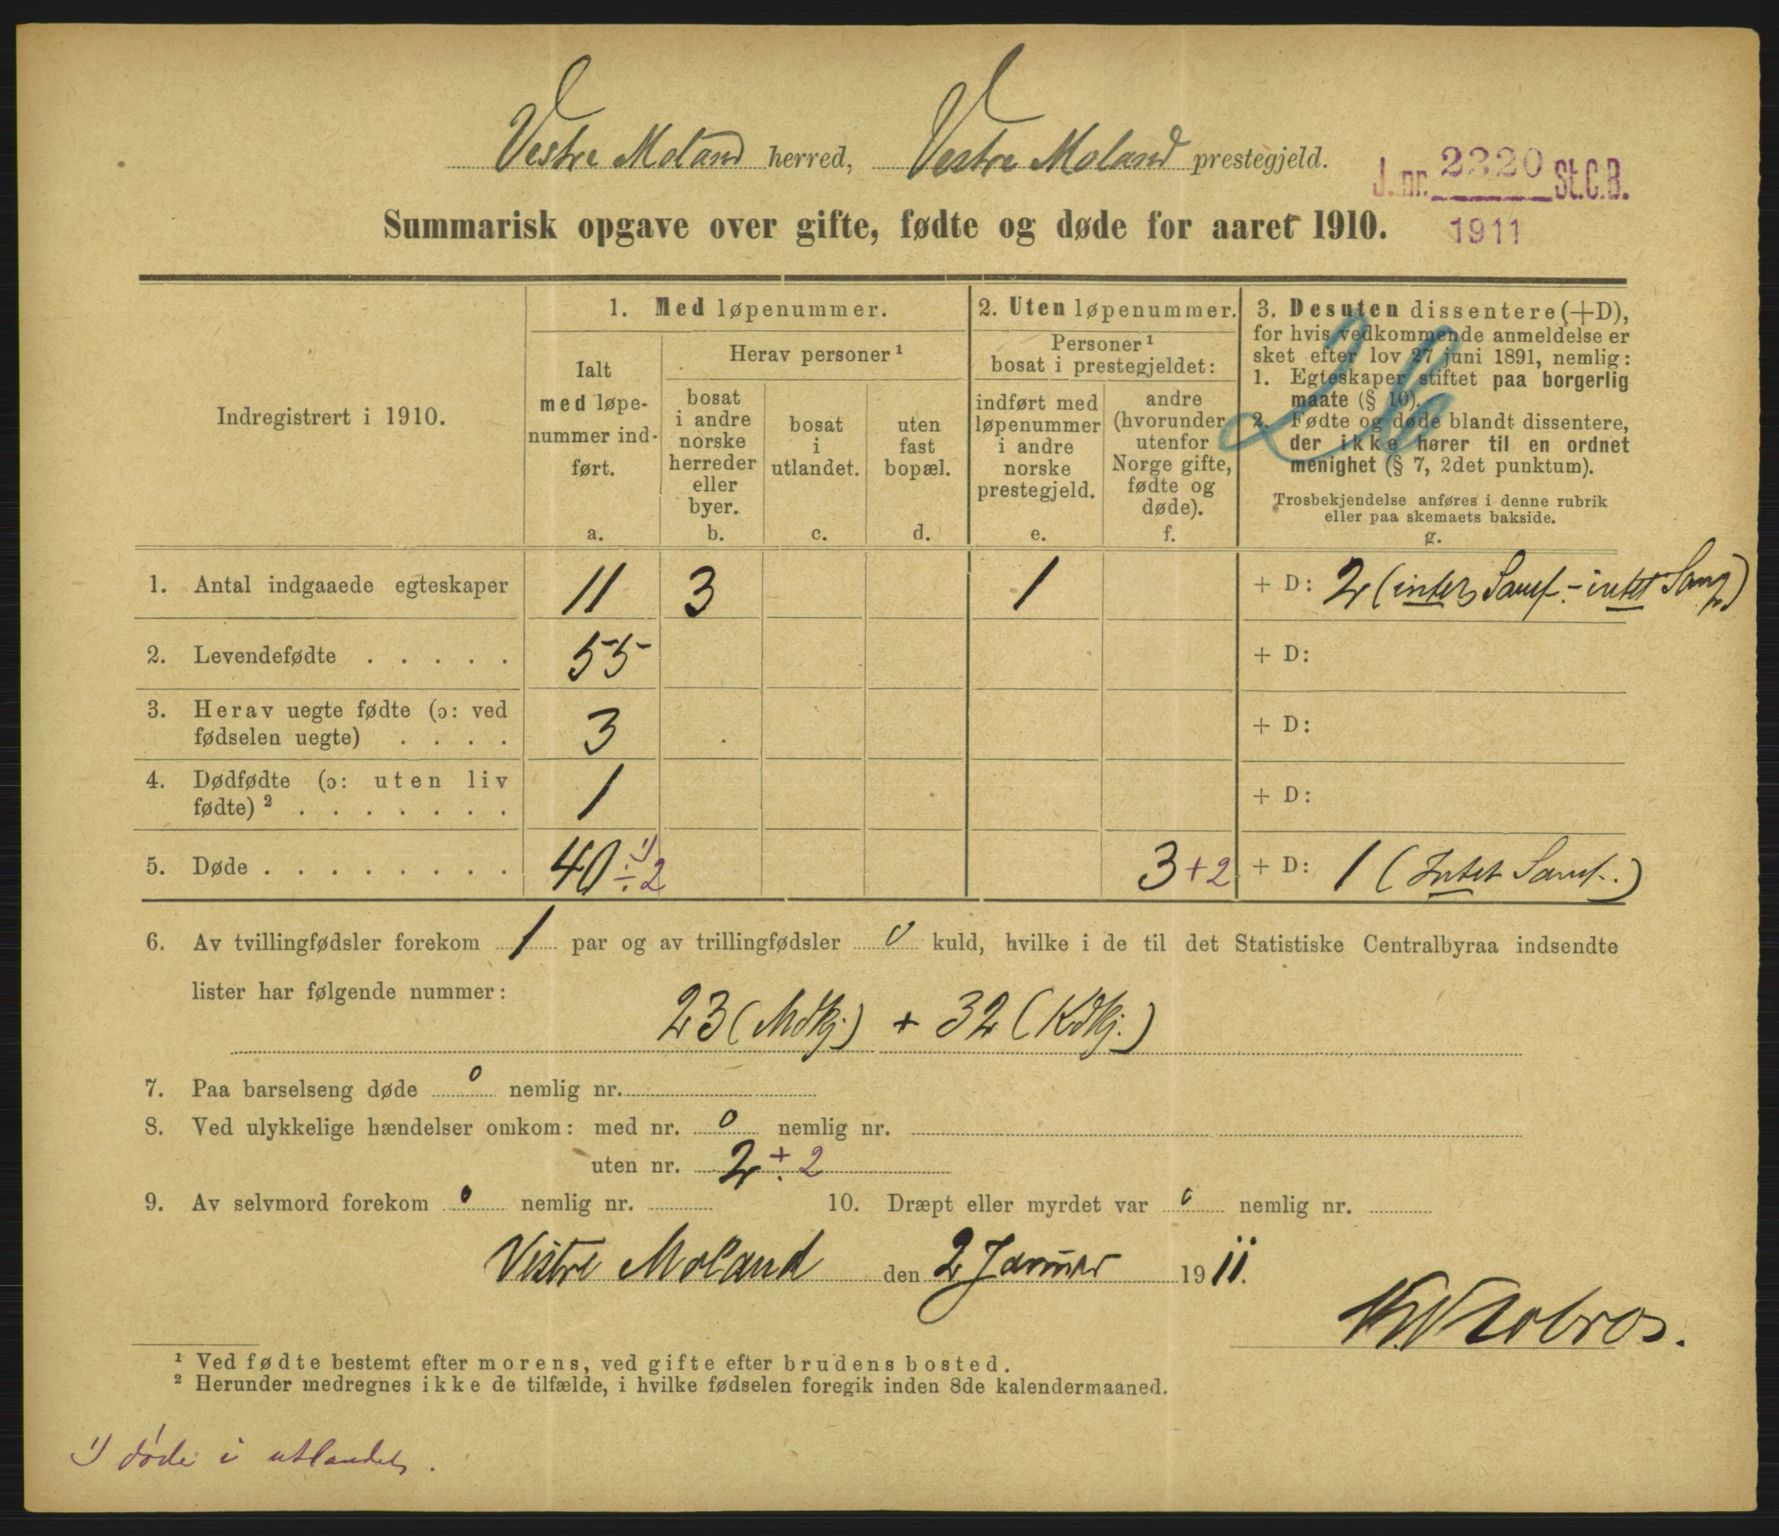 Vestre Moland herred, Vestre Moland prestegjeld.
J. nr. 2320 St.C.B.
1911
Summarisk opgave over gifte, fødte og døde for aaret 1910.
Indregistrert i 1910.
1. Med løpenummer.
Ialt
med løpe-
nummer ind-
ført.
a.
Herav personer ¹
bosat
i andre
norske
herreder
eller
byer.
b.
bosat
i
utlandet.
c.
uten
fast
bopæl.
d.
2. Uten løpenummer.
Personer ¹
bosat i prestegjeldet:
indført med
løpenummer
i andre
norske
prestegjeld.
e.
andre
(hvorunder
utenfor
Norge gifte,
fødte og
døde).
f.
3. Desuten dissentere (+D),
for hvis vedkommende anmeldelse er
sket efter lov 27 juni 1891, nemlig:
1. Egteskaper stiftet paa borgerlig
maate (§ 10).
2. Fødte og døde blandt dissentere,
der ikke hører til en ordnet
menighet (§ 7, 2det punktum).
Trosbekjendelse anføres i denne rubrik
eller paa skemaets bakside.
g.
1. Antal indgaaede egteskaper 11 3 1 + D: 2 (intet Samf. - intet Samf)
2. Levendefødte . . . . . 55 + D:
3. Herav uegte fødte (ɔ: ved
fødselen uegte) . . . . 3 + D:
4. Dødfødte (ɔ: uten liv
fødte) ² . . . . . . . 1 + D:
5. Døde . . . . . . . . 40 ÷ 2 ¹) 3 + 2 + D: 1 (Intet Samf.)
6. Av tvillingfødsler forekom 1 par og av trillingfødsler 0 kuld, hvilke i de til det Statistiske Centralbyraa indsendte
lister har følgende nummer:
23 (Mdkj) + 32 (Kdkj.)
7. Paa barselseng døde 0 nemlig nr.
8. Ved ulykkelige hændelser omkom: med nr. 0 nemlig nr.
uten nr. 2 + 2
9. Av selvmord forekom 0 nemlig nr. 10. Dræpt eller myrdet var 0 nemlig nr.
Vestre Moland den 2 Januar 1911.
¹ Ved fødte bestemt efter morens, ved gifte efter brudens bosted.
² Herunder medregnes ikke de tilfælde, i hvilke fødselen foregik inden 8de kalendermaaned.
¹) døde i utlandet.